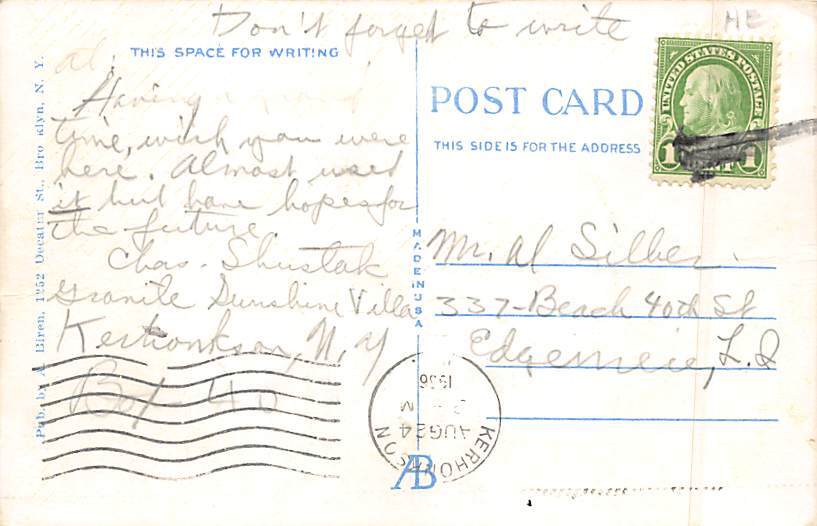 Don't forget to write
THIS SPACE FOR WRITING
Al,
Having a grand
time, wish you were
here. Almost used
it but have hopes for
the future.
Chas. Shustak
Granite Sunshine Villa
Kerhonkson, N.Y
Box 40
Pub. by A. Biren, 1252 Decatur St., Brooklyn, N. Y.
POST CARD
THIS SIDE IS FOR THE ADDRESS
MADE IN USA
UNITED STATES POSTAGE
1 1
Mr. Al Silber
337-Beach 40th St
Edgemere, L.I
KERHONKSON
AUG 24
1936
AB